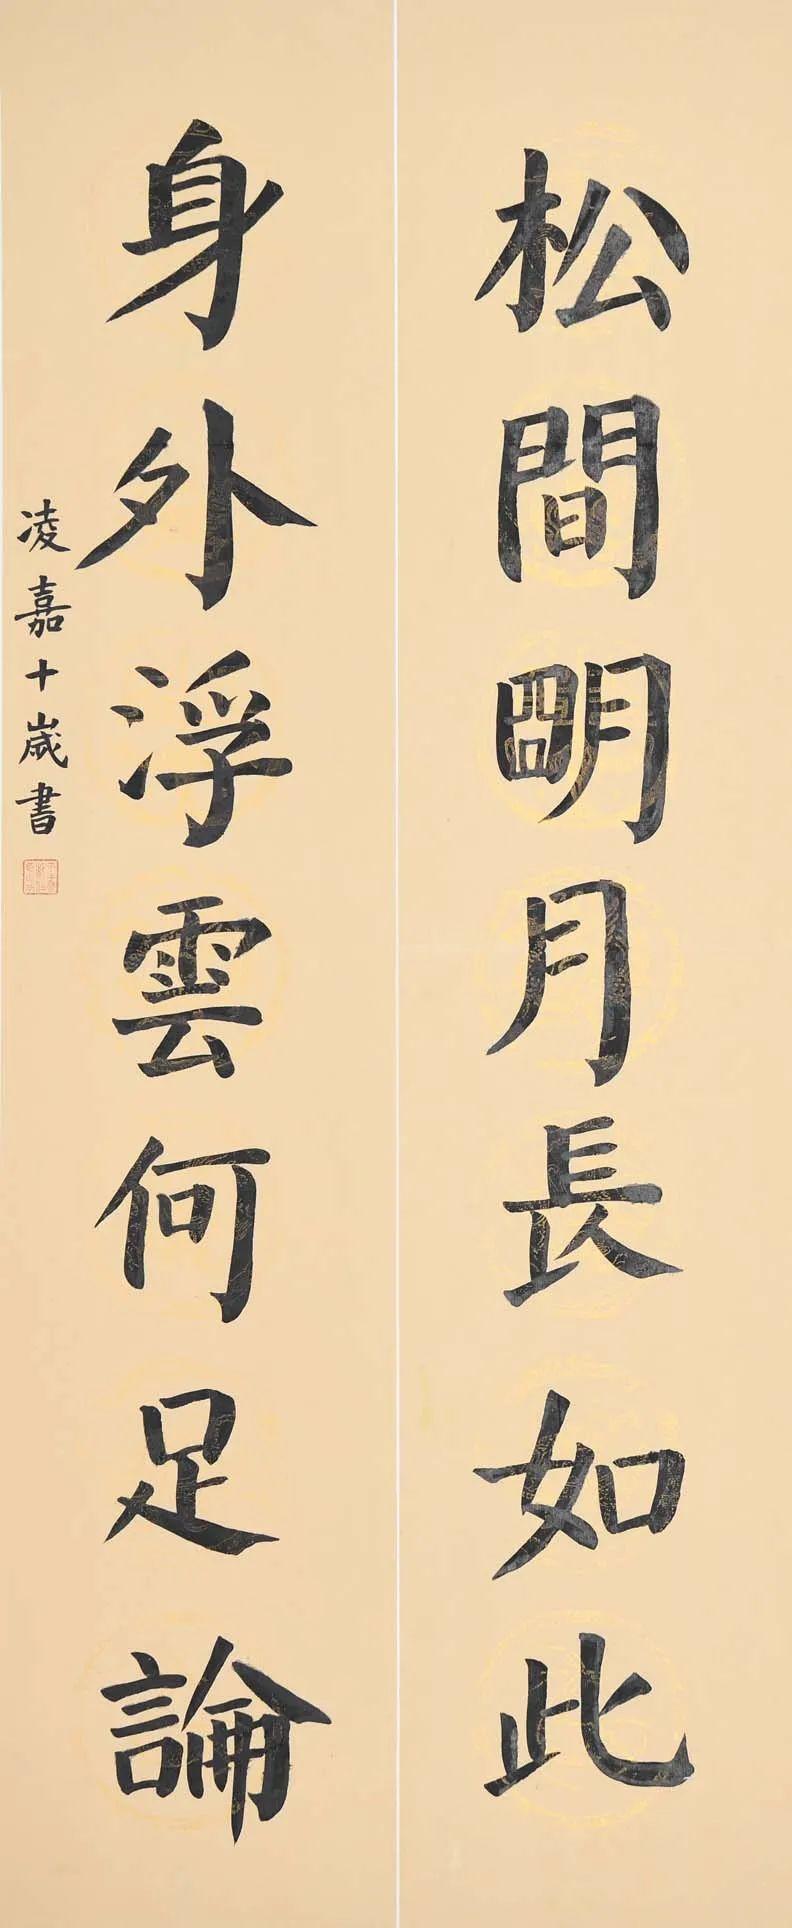 松間明月長如此
身外浮雲何足論
凌嘉十歲書